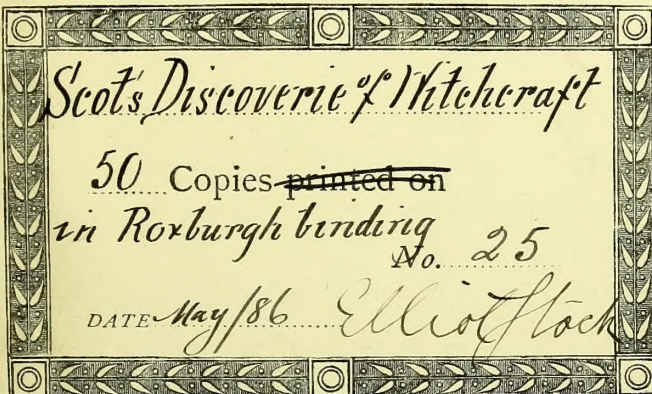 Scot's Discoverie of Witchcraft
50 Copies printed on
in Roxburgh binding
No. 25
DATE May/86 Elliot Stock